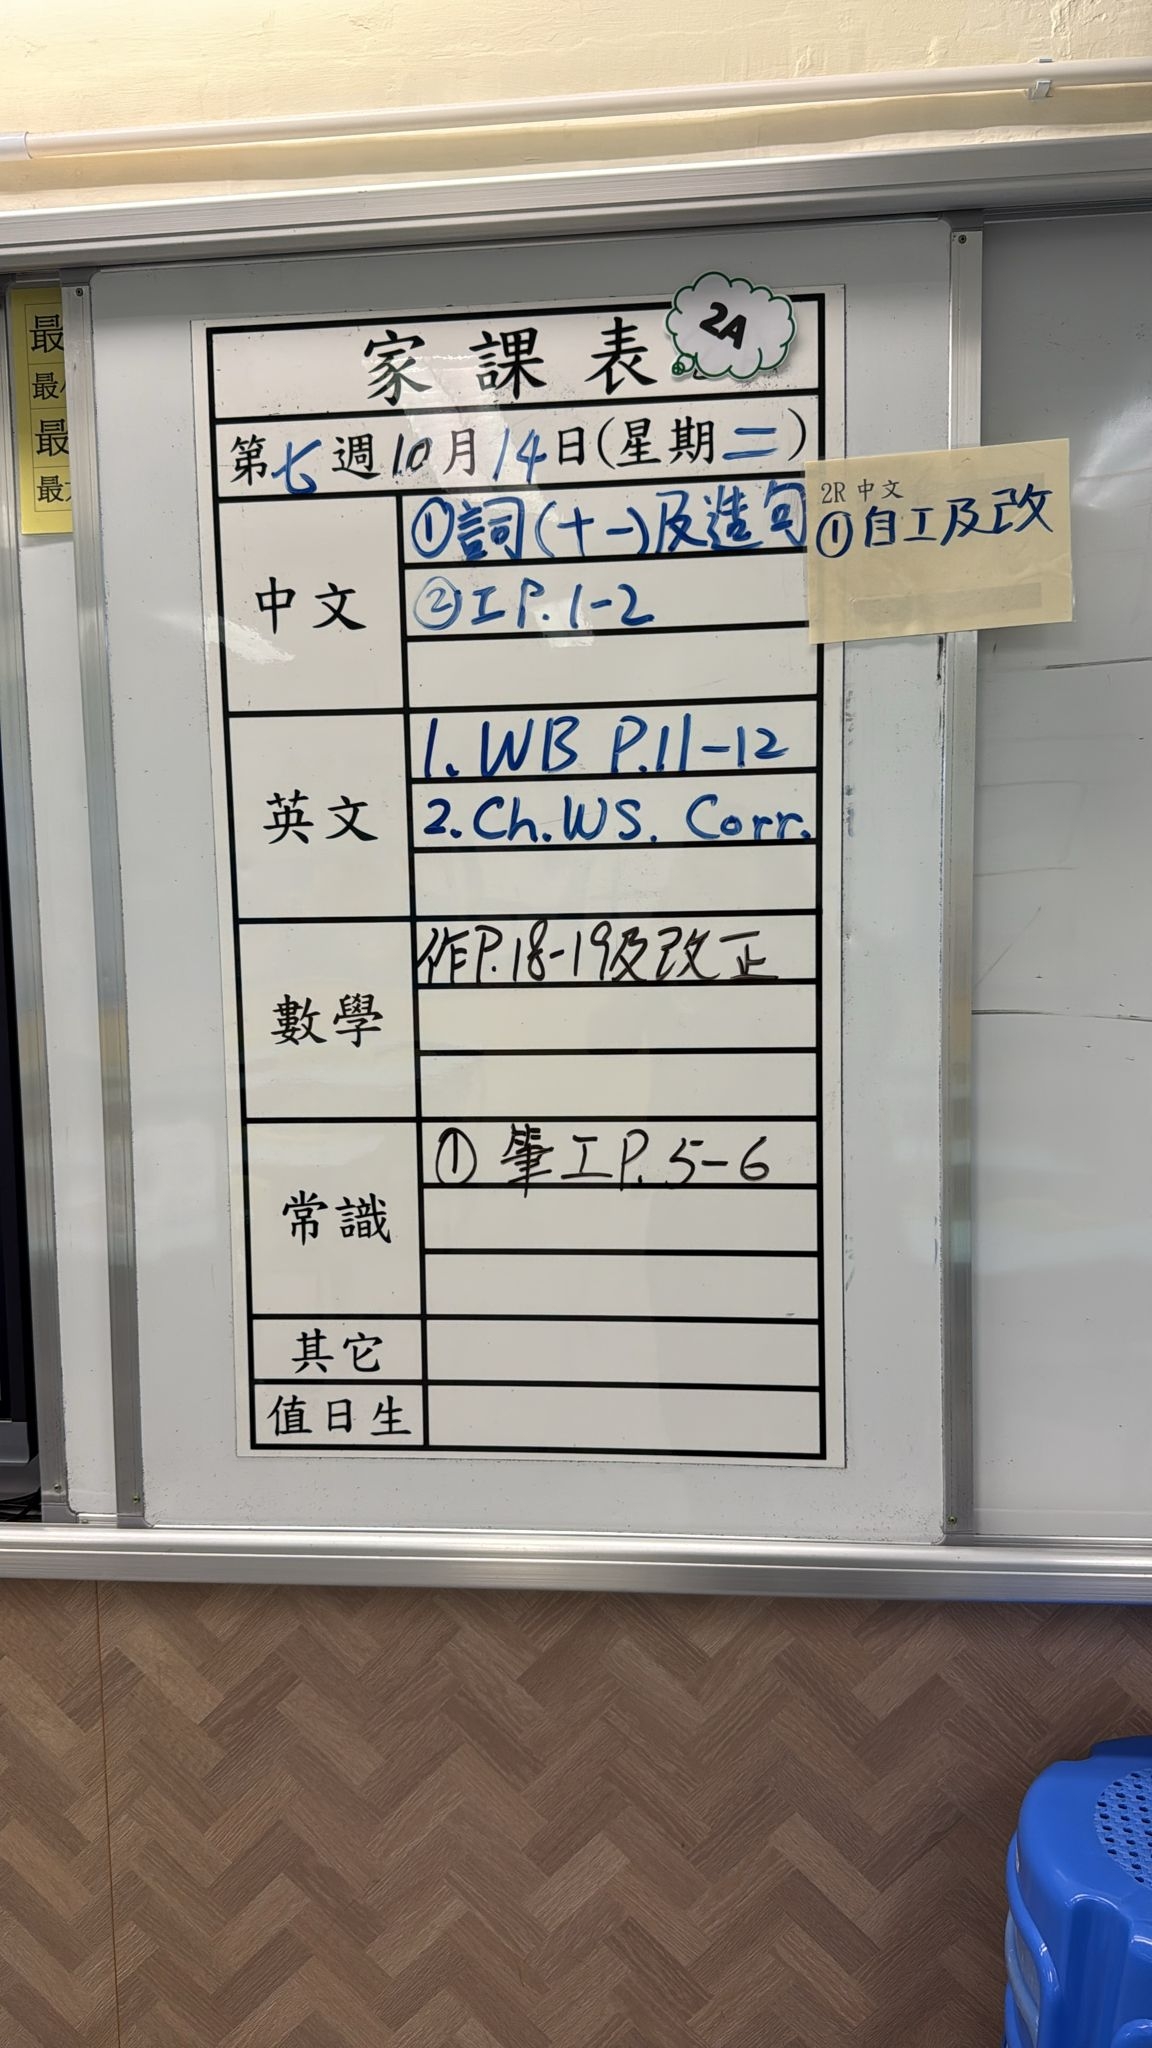 最
最
最
最
家課表
2A
第七週10月14日(星期二)
中文
①詞(十一)及造句
②工P.1-2
2R 中文
①自工及改
英文
1. WB P.11-12
2. Ch. WS. Corr.
數學
作P.18-19及改正
常識
① 筆工P.5-6
其它
值日生